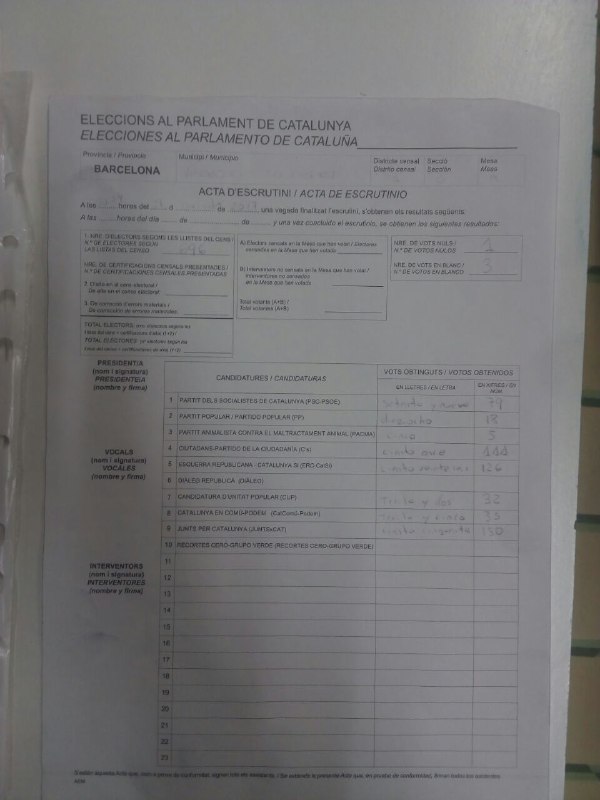 ELECCIONS AL PARLAMENT DE CATALUNYA
ELECCIONES AL PARLAMENTO DE CATALUÑA
Província / Provincia
Municipi / Municipio
Districte censal Secció Mesa
Distrito censal Sección Mesa
BARCELONA
ACTA D'ESCRUTINI / ACTA DE ESCRUTINIO
A les hores del d de una vegada finalitzat l'escrutini, s'obtenen els resultats següents:
A las horas del día de de y una vez concluido el escrutinio, se obtienen los siguientes resultados:
1. NRE. D'ELECTORS SEGONS LES LLISTES DEL CENS /
N.º DE ELECTORES SEGÚN
LAS LISTAS DEL CENSO
NRE. DE CERTIFICACIONS CENSALS PRESENTADES /
N.º DE CERTIFICACIONES CENSALES PRESENTADAS
2. D'alta en el cens electoral /
De alta en el censo electoral:
3. De correcció d'errors materials /
De corrección de errores materiales:
TOTAL ELECTORS
TOTAL ELECTORES
A) Electors censats en la Mesa que han votat / Electores
censados en la Mesa que han votado
B) Interventors no censats en la Mesa que han votat /
Interventores no censados
en la Mesa que han votado
Total votants (A+B) /
Total votantes (A+B)
NRE. DE VOTS NULS /
N.º DE VOTOS NULOS 1
NRE. DE VOTS EN BLANC /
N.º DE VOTOS EN BLANCO 3
PRESIDENT/A
(nom i signatura)
PRESIDENTE/A
(nombre y firma)
VOCALS
(nom i signatura)
VOCALES
(nombre y firma)
INTERVENTORS
(nom i signatura)
INTERVENTORES
(nombre y firma)
CANDIDATURES / CANDIDATURAS
VOTS OBTINGUTS / VOTOS OBTENIDOS
EN LLETRES / EN LETRA
EN XIFRES / EN NÚM.
1 PARTIT DELS SOCIALISTES DE CATALUNYA (PSC-PSOE) 79
2 PARTIT POPULAR / PARTIDO POPULAR (PP) dieciocho 18
3 PARTIT ANIMALISTA CONTRA EL MALTRACTAMENT ANIMAL (PACMA) cinco 5
4 CIUTADANS-PARTIDO DE LA CIUDADANÍA (C's)
5 ESQUERRA REPUBLICANA - CATALUNYA SÍ (ERC-CatSí) 126
6 DIÀLEG REPUBLICÀ (DIÀLEG)
7 CANDIDATURA D'UNITAT POPULAR (CUP) Treinta y dos 32
8 CATALUNYA EN COMÚ-PODEM (CatComú-Podem) Treinta y cinco 35
9 JUNTS PER CATALUNYA (JUNTSxCAT) 150
10 RECORTES CERO-GRUPO VERDE (RECORTES CERO-GRUPO VERDE)
11
12
13
14
15
16
17
18
19
20
21
22
23